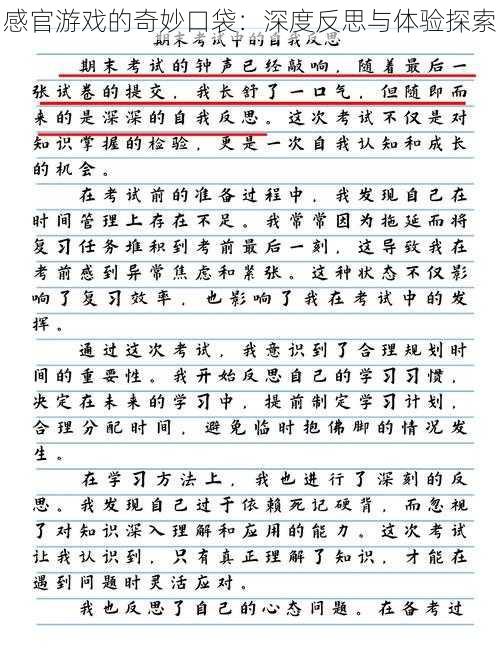 感官游戏的奇妙口袋：深度反思与体验探索
期末考试中的自我反思
期末考试的钟声已经敲响，随着最后一
张试卷的提交，我长舒了一口气，但随即而
来的是深深的自我反思。这次考试不仅是对
知识掌握的检验，更是一次自我认知和成长
的机会。
在考试前的准备过程中，我发现自己在
时间管理上存在不足。我常常因为拖延而将
复习任务堆积到考前最后一刻，这导致我在
考前感到异常焦虑和紧张。这种状态不仅影
响了复习效率，也影响了我在考试中的发
挥。
通过这次考试，我意识到了合理规划时
间的重要性。我开始反思自己的学习习惯，
决定在未来的学习中，提前制定学习计划，
合理分配时间，避免临时抱佛脚的情况发
生。
在学习方法上，我也进行了深刻的反
思。我发现自己过于依赖死记硬背，而忽视
了对知识深入理解和应用的能力。这次考试
让我认识到，只有真正理解了知识，才能在
遇到问题时灵活应对。
我也反思了自己的心态问题。在备考过